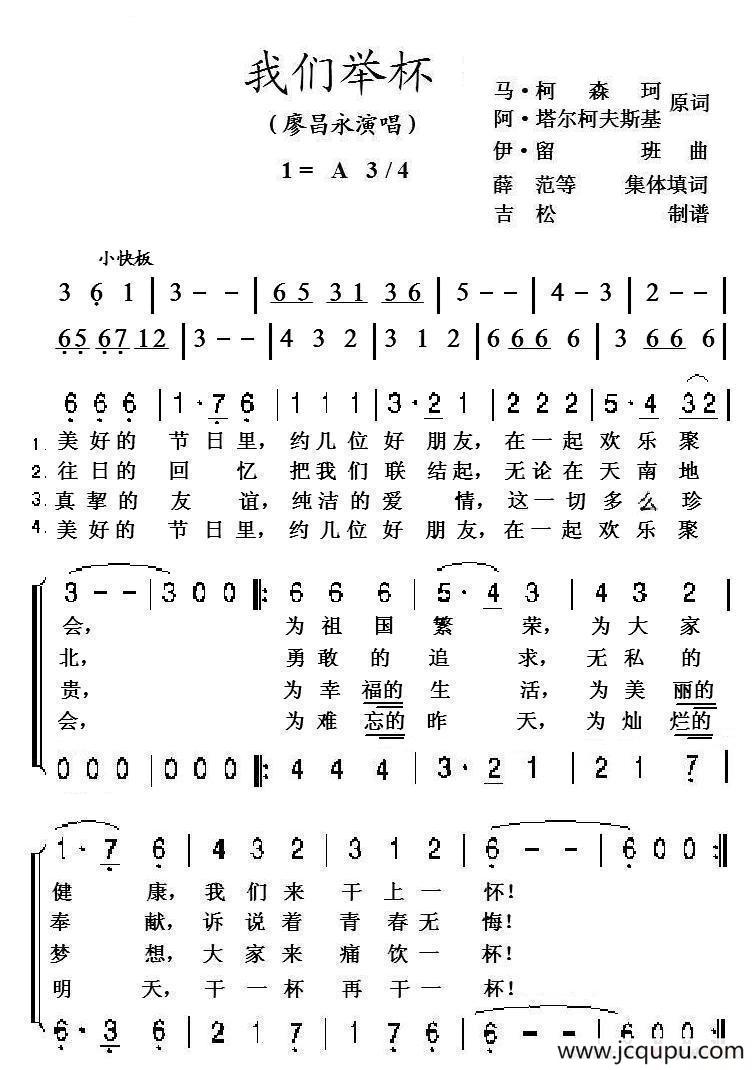 我们举杯
（廖昌永演唱）
1= A 3/4
马·柯森珂 原词
阿·塔尔柯夫斯基
伊·留班曲
薛范等 集体填词
吉松 制谱
小快板
3 6̣ 1 | 3 - - | 6 5 3 1 3 6 | 5 - - | 4 - 3 | 2 - - |
6̣ 5̣ 6̣ 7̣ 1 2 | 3 - - | 4 3 2 | 3 1 2 | 6 6 6 6 | 3 6 6 6 |
6̣ 6̣ 6̣ | 1 · 7̣ 6̣ | 1 1 1 | 3 · 2 1 | 2 2 2 | 5 · 4 3 2
1. 美好的 节日里，约几位好 朋友，在一起欢乐聚
2. 往日的 回 忆 把我们联 结起，无论在天南地
3. 真挚的 友 谊，纯洁的爱 情，这一切多么珍
4. 美好的 节日里，约几位好 朋友，在一起欢乐聚
3 - - | 3 0 0 ‖: 6 6 6 | 5 · 4 3 | 4 3 2
会， 为祖国繁 荣，为大家
北， 勇敢的追 求，无私的
贵， 为幸福的生 活，为美丽的
会， 为难忘的昨 天，为灿烂的
0 0 0 | 0 0 0 ‖: 4 4 4 | 3 · 2 1 | 2 1 7̣
1 · 7̣ 6̣ | 4 3 2 | 3 1 2 | 6̣ - - | 6̣ 0 0 :‖
健 康，我们来干上一 怀！
奉 献，诉说着青春无 悔！
梦 想，大家来痛饮一 杯！
明 天，干一杯再干一 杯！
6̣ · 3̣ 6̣ | 2 1 7̣ | 1 7̣ 6̣ | 6̣ - - | 6̣ 0 0 :‖
www.jcqupu.com